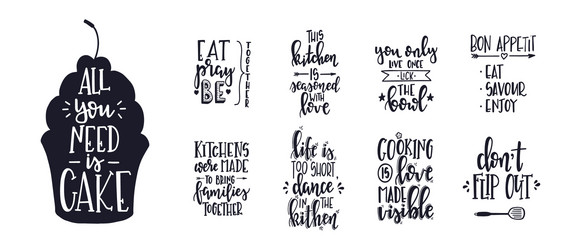 ALL
you
NEED
is
CAKE
EAT
pray
BE
TOGETHER
THIS
kitchen
IS
seasoned
WITH
love
you only
LIVE ONCE
LICK
THE
bowl
BON APPETIT
· EAT
· SAVOUR
· ENJOY
KITCHENS
were MADE
TO BRING
families
TOGETHER
life is
TOO SHORT
dance
IN THE
kithen
COOKING
IS love
MADE
visible
don't
FLIP OUT